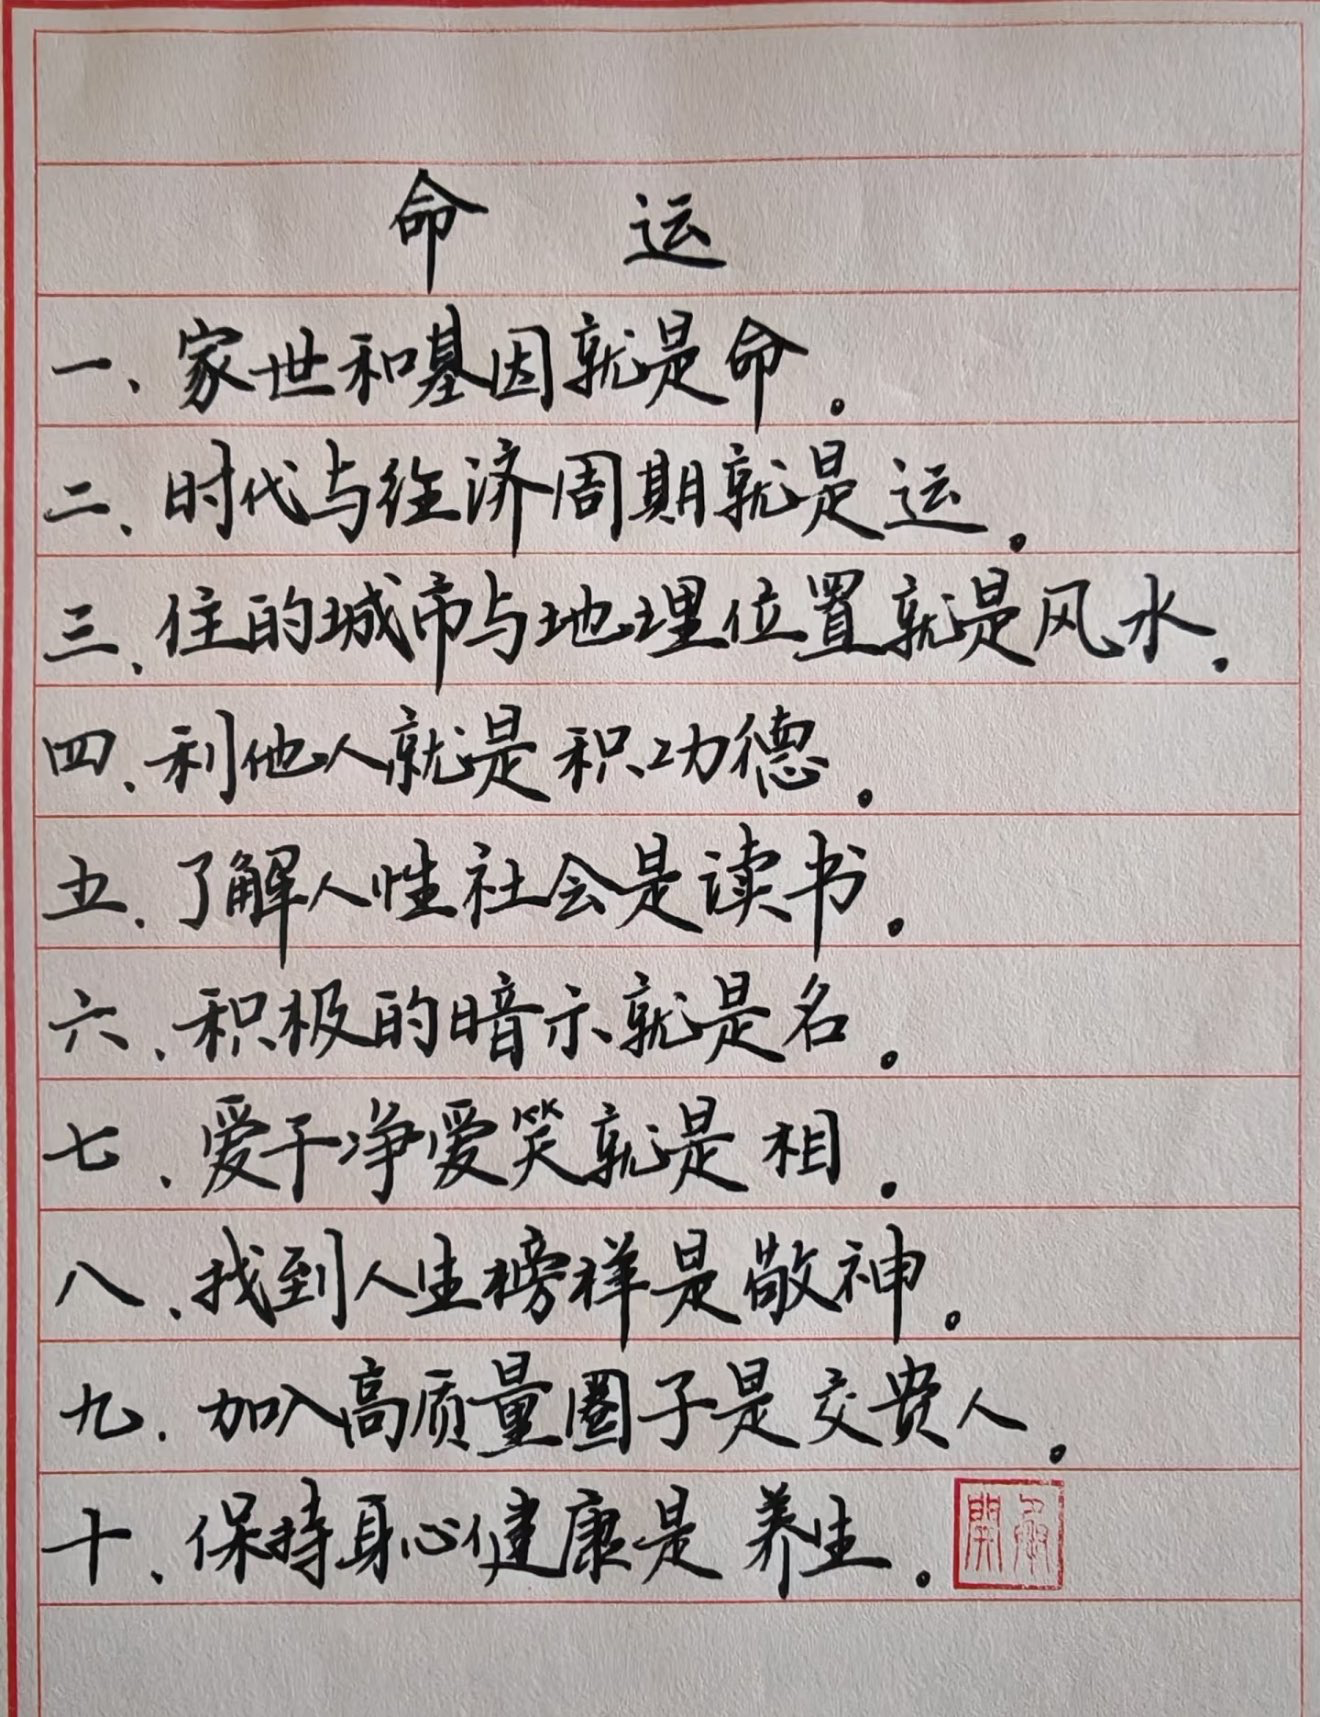 命 运
一、家世和基因就是命。
二、时代与经济周期就是运。
三、住的城市与地理位置就是风水。
四、利他人就是积功德。
五、了解人性社会是读书。
六、积极的暗示就是名。
七、爱干净爱笑就是相。
八、找到人生榜样是敬神。
九、加入高质量圈子是交贵人。
十、保持身心健康是养生。